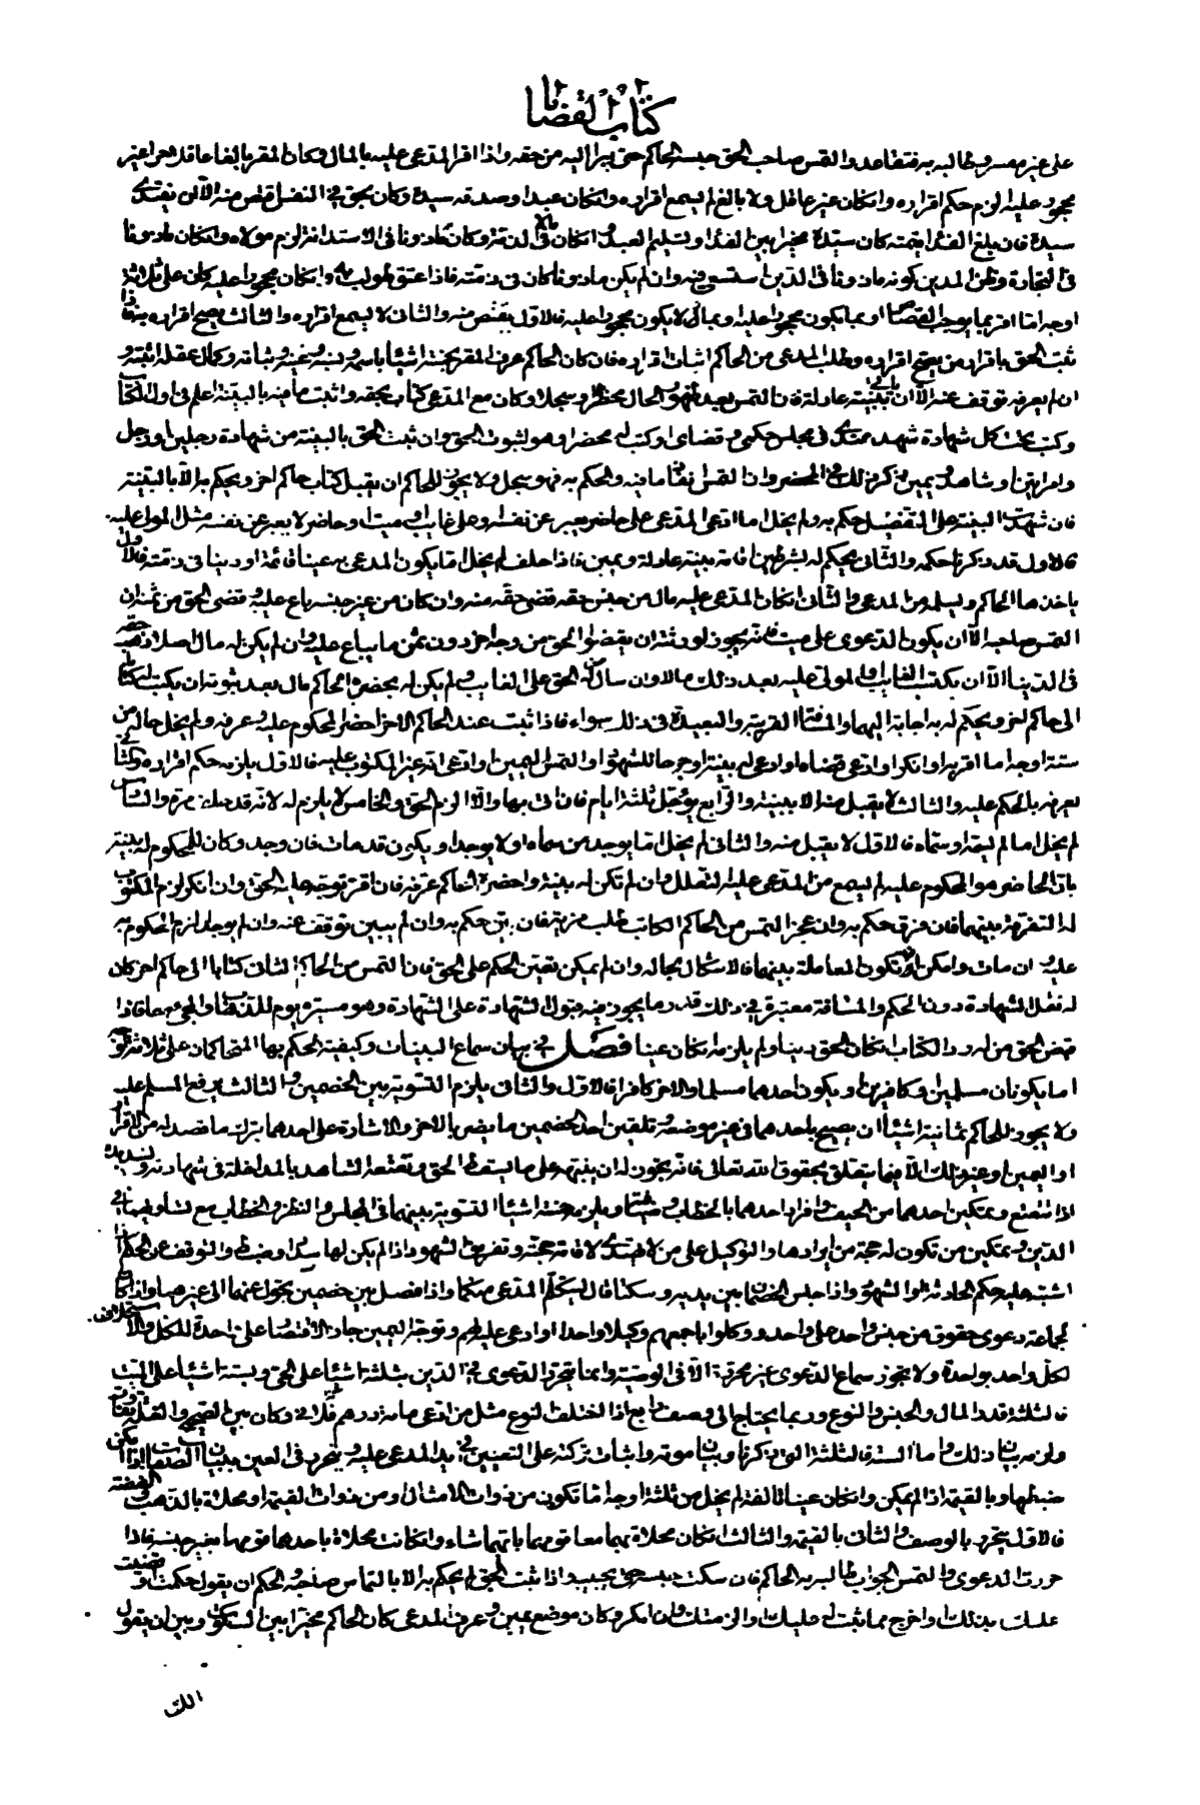 كتاب القضايا
على غير معسر وطالبه به فتقاعد والتمس صاحب الحق حبسه الحاكم حتى يبرأ اليه من حقه واذا اقر المدعى عليه بالمال وكان المقر بالغا عاقلا حرا غير
محجور عليه لزم حكم اقراره وان كان غير عاقل ولا بالغ لم يسمع اقراره وان كان عبدا وصدقه سيده وكان بحق في النفس اقتص منه الا ان يفتديه
سيده فان بلغ الفداء قيمته كان سيده مخيرا بين الفداء وتسليم العبد وان كان مالا في الذمة وكان مأذونا في الاستدانة لزم مولاه وان كان مأذونا
في التجارة وظن المدين كونه مأذونا في الدين استسعى فيه وان لم يكن مأذونا كان في ذمته فاذا عتق طولب به وان كان محجورا عليه كان على ثلاثة
اوجه اما اقر بما يوجب القصاص او بما يكون محجورا عليه او بمال لا يكون محجورا عليه فالاول يقتص منه والثاني لا يسمع اقراره والثالث يصح اقراره به فاذا
ثبت الحق باقرار من يصح اقراره وطلب المدعي من الحاكم اثبات اقراره فان كان الحاكم عرف المقر بخمسة اشياء باسمه ونسبه وعينه وثباته وكمال عقله اثبته و
ان لم يعرفه توقف عنه الا ان يأتي ببينة عادلة فان التمس بعد ظهور الحال محضرا وسجلا وكان مع المدعي كتاب بحقه واثبت ما فيه بالبينة اعلم في اول الكتاب
وكتب تحت كل شهادة شهد عندي في مجلس حكمي وقضائي او كتب له محضرا وهو لثبوت الحق وان ثبت الحق بالبينة من شهادة رجلين او رجل
وامراتين او شاهد ويمين ذكر ذلك في المحضر وان التمس انفاذ ما فيه والحكم به فهو سجل ولا يجوز للحاكم ان يقبل كتاب حاكم اخر ويحكم به الا بالبينة
فان شهدت البينة على التفصيل حكم به ولم يخل اما ادعى المدعي على حاضر يعبر عن نفسه او على غايب او ميت او حاضر لا يعبر عن نفسه مثل المولى عليه
فالاول قد ذكرنا حكمه والثاني يحكم له بشرطين اقامة بينة عادلة ويمين فاذا حلف لم يخل اما يكون المدعى به عينا قائمة او دينا في ذمته فالاول
ياخذها الحاكم ويسلم من المدعي والثاني ان كان المدعى عليه مال من جنس حقه قضى حقه منه وان كان من غير جنسه باع عليه وقضى الحق من ثمنه ان
التمس صاحبه الا ان يكون الدعوى على ميت فانه يجوز لورثته ان يقضوا الحق من وجه اخر دون ثمن ما يباع عليه وان لم يكن له مال اصلا فحقه
في الدين الا ان يكتسب الغايب او المولى عليه بعد ذلك مالا وان سأل الحق على الغايب ولم يكن له بحضرة الحاكم مال بعد ثبوته ان يكتب له كتابا
الى حاكم اخر ويحكم له به اجابه اليهما والمسافة القريبة والبعيدة في ذلك سواء فاذا ثبت عند الحاكم الاخر احضر المحكوم عليه وعرفه ولم يخل حاله من
ستة اوجه اما اقر به او انكر او ادعى قضاه او ادعى له بينة او جرحا للشهود او التمس اليمين او ادعى انه غير المكتوب عليه فالاول يلزمه حكم اقراره والثاني
يعرفه بالحكم عليه والثالث لا يقبل منه الا ببينة والرابع يؤجل ثلثة ايام فان اتى بها والا الزم الحق والخامس لا يلزم له لانه قد حلف مرة والسادس
لم يخل اما لم يسمه او سماه فالاول لا يقبل منه والثاني لم يخل اما يوجد من سماه او لا يوجد او يكون قد مات فان وجد وكان للمحكوم له بينة
بان الحاضر هو المحكوم عليه لم يسمع من المدعى عليه التعلل وان لم تكن له بينة واحضره الحاكم عرفه فان اقر توجه عليه الحق وان انكر لزم المكتوب
له التفرقة بينهما فان فرق حكم به وان عجز التمس من الحاكم الكاتب طلب مزية فان بين حكم به وان لم يبين توقف عنه وان لم يوجد لزم المحكوم به
عليه وان مات وامكن ان تكون المعاملة بينهما فالاشكال بحاله وان لم يمكن تعين الحكم على الحق فان التمس من الحاكم الثاني كتابا الى حاكم اخر كان
له نقل الشهادة دون الحكم والمسافة معتبرة في ذلك قدر ما يجوز فيه قبول الشهادة على الشهادة وهو مسيرة يوم للذهاب والمجيء معا فاذا
قبض الحق من له رد الكتاب ان كان الحق دينا ولم يلزمه ان كان عينا فصل في بيان سماع البينات وكيفية الحكم بها المتحاكمان على ثلاثة اوجه
اما يكونان مسلمين او كافرين او يكون احدهما مسلما والاخر كافرا فالاول والثاني يلزم التسوية بين الخصمين والثالث يرفع المسلم عليه
ولا يجوز للحاكم ثمانية اشياء ان يصيح باحدهما في غير موضعه وتلقين احد الخصمين ما يضر بالاخر والاشارة على احدهما بترك ما قصد له من الاقرار
او اليمين او غير ذلك الا فيما يتعلق بحقوق الله تعالى فانه يجوز له ان ينبهه على ما يسقط الحق وتعتعة الشاهد بالمداخلة في شهادته وتسديده
اذا تتعتع وتمكين احدهما من الحيف وافراد احدهما بالخطاب وضيافته ويلزمه خمسة اشياء التسوية بينهما في المجلس والنظر والخطاب مع تساويهما في
الدين وتمكين من تكون له حجة من ايرادها والتوكيل على من لا يهتدي لاقامة حجته وتفريق الشهود اذا لم يكن لها سداد وضبط والتوقف عن الحكم اذا
اشتبه عليه حكم الحادثة او الشهود واذا جلس الخصمان بين يديه وسكتا قال ليتكلم المدعي منكما واذا فصل بين خصمين تحول عنهما الى غيرهما واذا كان
لجماعة دعوى حقوق من جنس واحد على واحد ووكلوا باجمعهم وكيلا واحدا او ادعى عليهم وتوجه اليمين جاز الاقتصار على واحدة للكل والاستحلاف
لكل واحد بواحدة ولا يجوز سماع الدعوى غير محررة الا في الوصية وانما تحرر الدعوى في الدين بثلثة اشياء على الحي وبستة اشياء على الميت
فالثلثة قدر المال والجنس والنوع وربما يحتاج الى وصف رابع اذا اختلف النوع مثل من ادعى مائة درهم وكان بين الصحيح والغلة تفاوت
ولزمه بيان ذلك واما الستة فالثلثة التي ذكرنا وبيان موته واثبات تركته على التعيين في يد المدعى عليه ويحرر في العين ببيان الصفات اذا امكن
ضبطها وبالقيمة اذا لم يمكن وان كان عينا تالفة لم يخل من ثلثة اوجه اما تكون من ذوات الامثال او من ذوات القيمة او محلاة بالذهب والفضة
فالاول يحرر بالوصف والثاني بالقيمة والثالث ان كان محلاة بهما معا قومها بايهما شاء وان كانت محلاة باحدهما قومها بغير جنسه فاذا
حررت الدعوى والتمس الجواب طالبه به الحاكم فان سكت حبسه حتى يجيب واذا ثبت الحق لم يحكم به الا بالتماس صاحبه والحكم ان يقول حكمت او قضيت
عليك بذلك او اخرج مما ثبت له عليك او الزمتك وان انكر وكان موضع يمين وعرف المدعي كان الحاكم مخيرا بين السكوت وبين ان يقول
الك